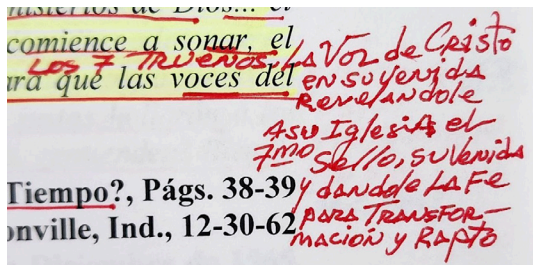 misterios de Dios... el
comience a sonar, el
LOS 7 TRUENOS
ará que las voces del
Tiempo?, Págs. 38-39
onville, Ind., 12-30-62
LA VOZ de CRISTO
EN SU VENIDA
Revelandole
A su Iglesia el
7mo Sello, su Venida
y dandole LA Fe
PARA TRANSFOR-
MACIÓN y RAPTO